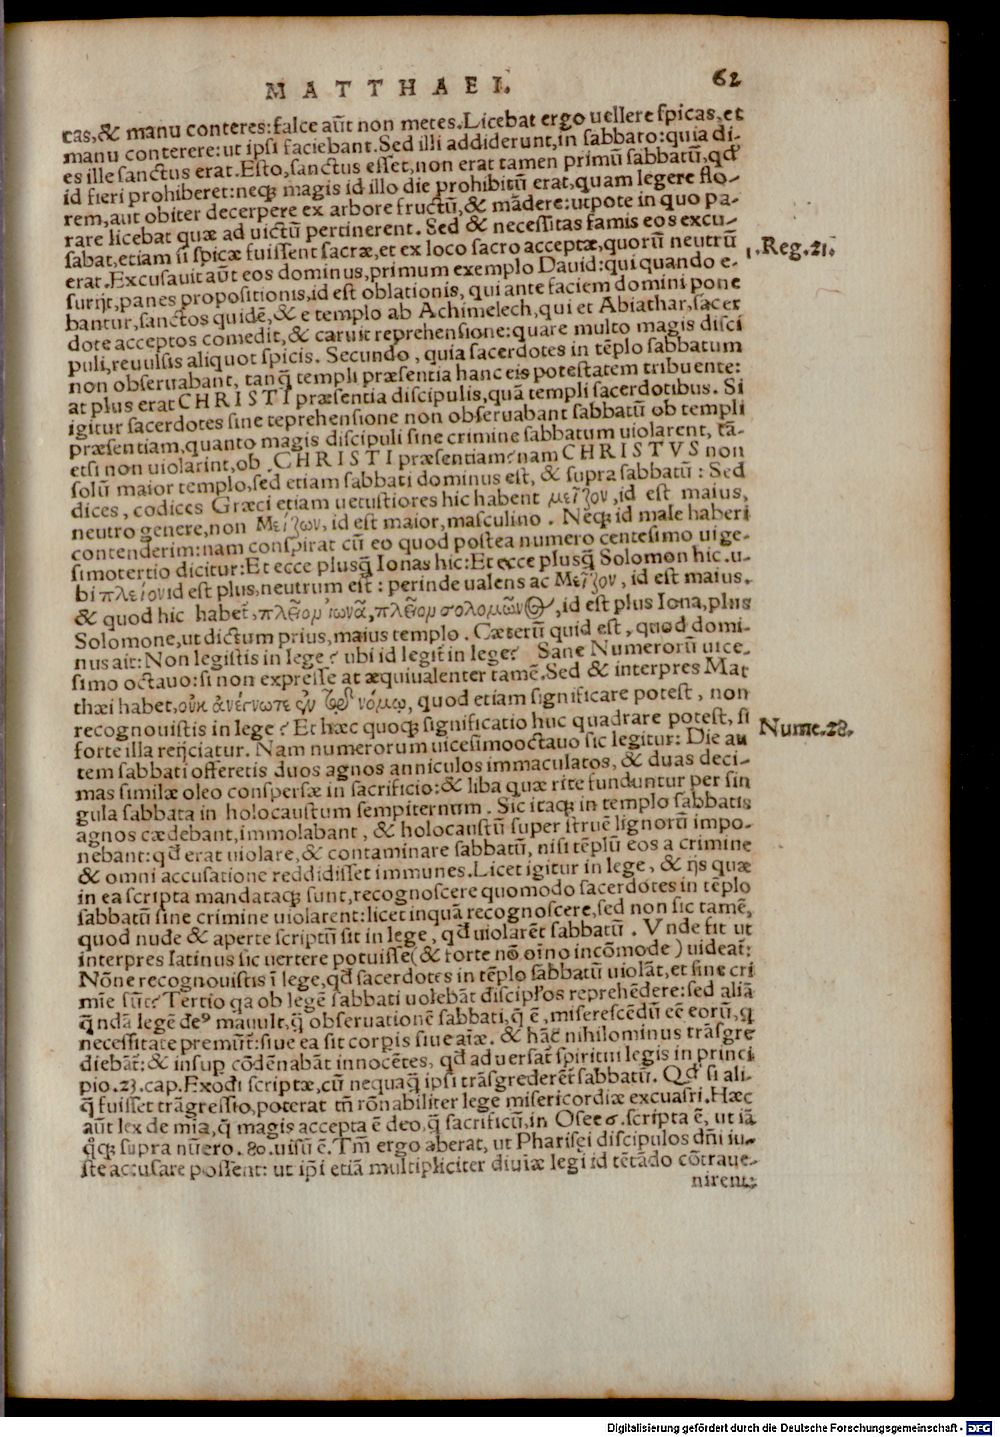 MATTHAEI. 62
cas,& manu conteres:falce aūt non metes.Licebat ergo uellere spicas,et
manu conterere:ut ipsi faciebant.Sed illi addiderunt,in sabbato:quia di-
es ille sanctus erat.Esto,sanctus esset,non erat tamen primū sabbatū,qđ
id fieri prohiberet:neqꝫ magis id illo die prohibitū erat,quam legere flo-
rem,aut obiter decerpere ex arbore fructū,& mādere:utpote in quo pa-
rare licebat quæ ad uictū pertinerent. Sed & necessitas famis eos excu-
sabat,etiam si spicæ fuissent sacræ,et ex loco sacro acceptæ,quorū neutrū
1.Reg.21.
erat.Excusauit aūt eos dominus,primum exemplo Dauid:qui quando e-
surijt,panes propositionis,id est oblationis, qui ante faciem domini pone
bantur,sanctos quidē,& e templo ab Achimelech,qui et Abiathar,sacer
dote acceptos comedit,& caruit reprehensione:quare multo magis disci
puli,reuulsis aliquot spicis. Secundo, quia sacerdotes in tēplo sabbatum
non obseruabant, tanq̄ templi præsentia hanc eis potestatem tribuente:
at plus erat CHRISTI præsentia discipulis,quā templi sacerdotibus. Si
igitur sacerdotes sine reprehensione non obseruabant sabbatū ob templi
præsentiam,quanto magis discipuli sine crimine sabbatum uiolarent, tā-
etsi non uiolarint,ob CHRISTI præsentiam?nam CHRISTVS non
solū maior templo,sed etiam sabbati dominus est, & supra sabbatū: Sed
dices, codices Græci etiam uetustiores hic habent μεῖζον,id est maius,
neutro genere,non Μείζων, id est maior,masculino. Neqꝫ id male haberi
contenderim:nam conspirat cū eo quod postea numero centesimo uige-
simotertio dicitur:Et ecce plusq̄ Ionas hic:Et ecce plusq̄ Solomon hic.u-
bi πλεῖον id est plus,neutrum est: perinde ualens ac Μεῖζον, id est maius.
& quod hic habet,πλεῖον ἰωνᾶ,πλεῖον σολομῶνος,id est plus Iona,plus
Solomone,ut dictum prius,maius templo. Cæterū quid est, quod domi-
nus ait:Non legistis in lege? ubi id legit̄ in lege? Sane Numerorū uice-
simo octauo:si non expresse at æquiualenter tamē.Sed & interpres Mat
thæi habet,οὐκ ἀνέγνωτε ἐν τῷ νόμῳ, quod etiam significare potest, non
recognouistis in lege? Et hæc quoqꝫ significatio huc quadrare potest, si
Nume.28.
forte illa reijciatur. Nam numerorum uicesimooctauo sic legitur: Die au
tem sabbati offeretis duos agnos anniculos immaculatos, & duas deci-
mas similæ oleo conspersæ in sacrificio:& liba quæ rite funduntur per sin
gula sabbata in holocaustum sempiternum. Sic itaqꝫ in templo sabbatis
agnos cædebant,immolabant, & holocaustū super struē lignorū impo-
nebant:qđ erat uiolare,& contaminare sabbatū, nisi tēplū eos a crimine
& omni accusatione reddidisset immunes.Licet igitur in lege, & ijs quæ
in ea scripta mandataqꝫ sunt,recognoscere quomodo sacerdotes in tēplo
sabbatū sine crimine uiolarent:licet inquā recognoscere,sed non sic tamē,
quod nude & aperte scriptū sit in lege, qđ uiolarēt sabbatū. Vnde fit ut
interpres latinus sic uertere potuisse(& forte nō oīno incōmode) uideat̄:
Nōne recognouistis ī lege,qđ sacerdotes in tēplo sabbatū uiolāt,et sine cri
mīe sūt? Tertio qa ob legē sabbati uolebāt discipłos reprehēdere:sed aliā
q̄ndā legē deꝰ mauult,q̄ obseruationē sabbati,q̄ ē,miserescēdū eē eorū,q
necessitate premūt̄:siue ea sit corpis siue aīæ. & hāc nihilominus trāsgre
diebāt̄:& insup cōdēnabāt innocētes, qđ aduersat̄ spiritui legis in princi
pio.23.cap.Exodi scriptæ,cū nequaq̄ ipsi trāsgrederēt̄ sabbatū. Qđ si ali-
q̄ fuisset trāgressio,poterat tñ rōnabiliter lege misericordiæ excusari.Hæc
aūt lex de mīa,q̄ magis accepta ē deo,q̄ sacrificiū,in Osee 6.scripta ē, ut iā
q̊qꝫ supra nūero.80.uisū ē.Tm̄ ergo aberat, ut Pharisei discipulos dñi iu-
ste accusare possent: ut ipi etiā multipliciter diuiæ legi id tētādo cōtraue-
nirent:
Digitalisierung gefördert durch die Deutsche Forschungsgemeinschaft - DFG